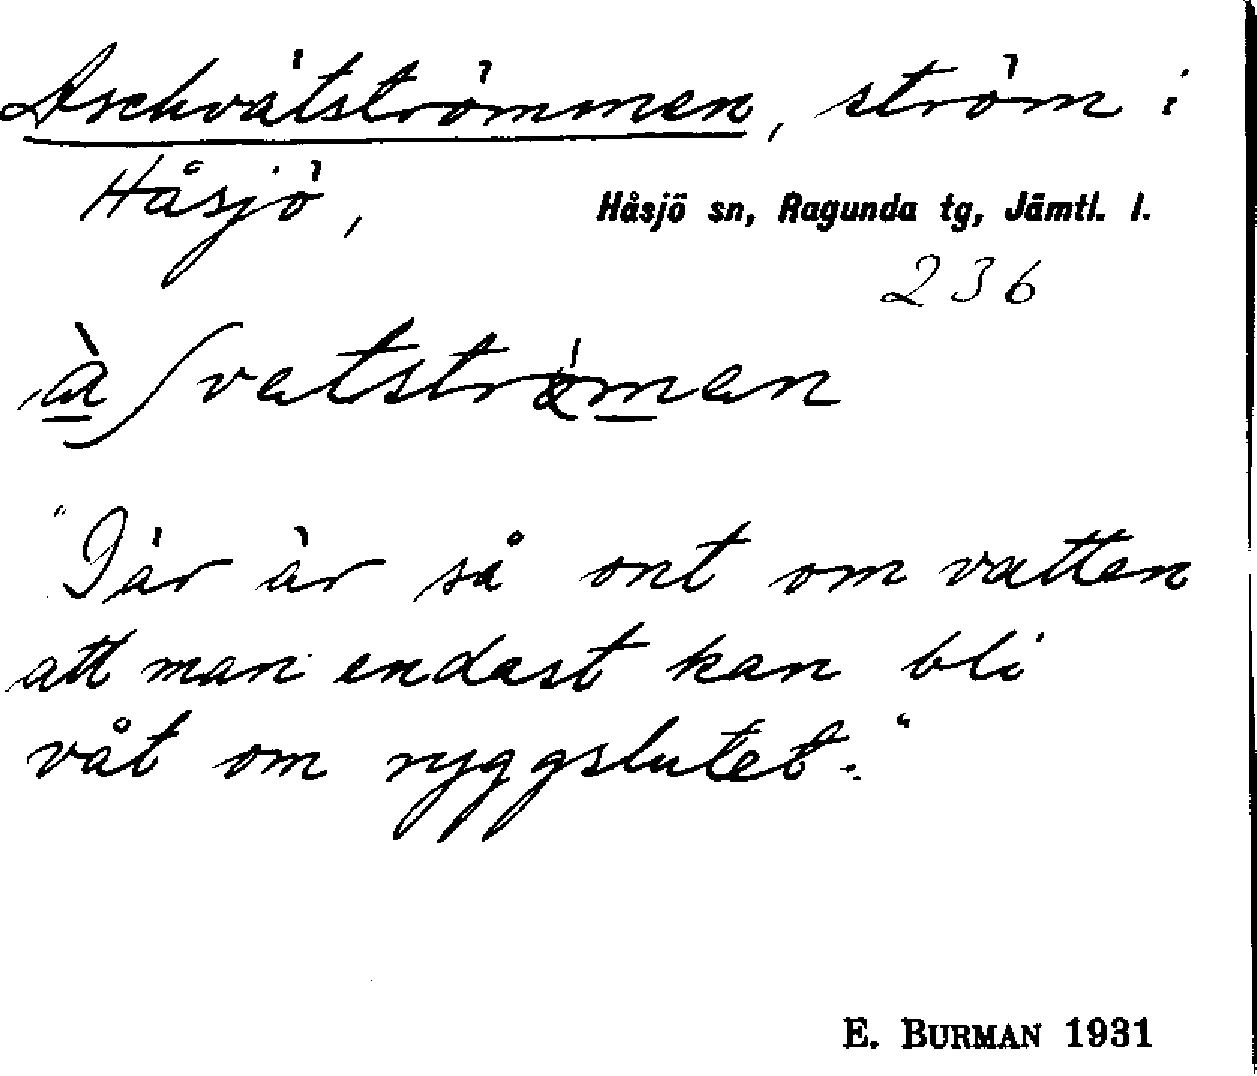 Aschvätströmmen, ström i
Håsjö,
Håsjö sn, Ragunda tg, Jämtl. l.
236
àʃvetströmen
"Där är så ont om vatten
att man endast kan bli
våt om ryggslutet."
E. BURMAN 1931